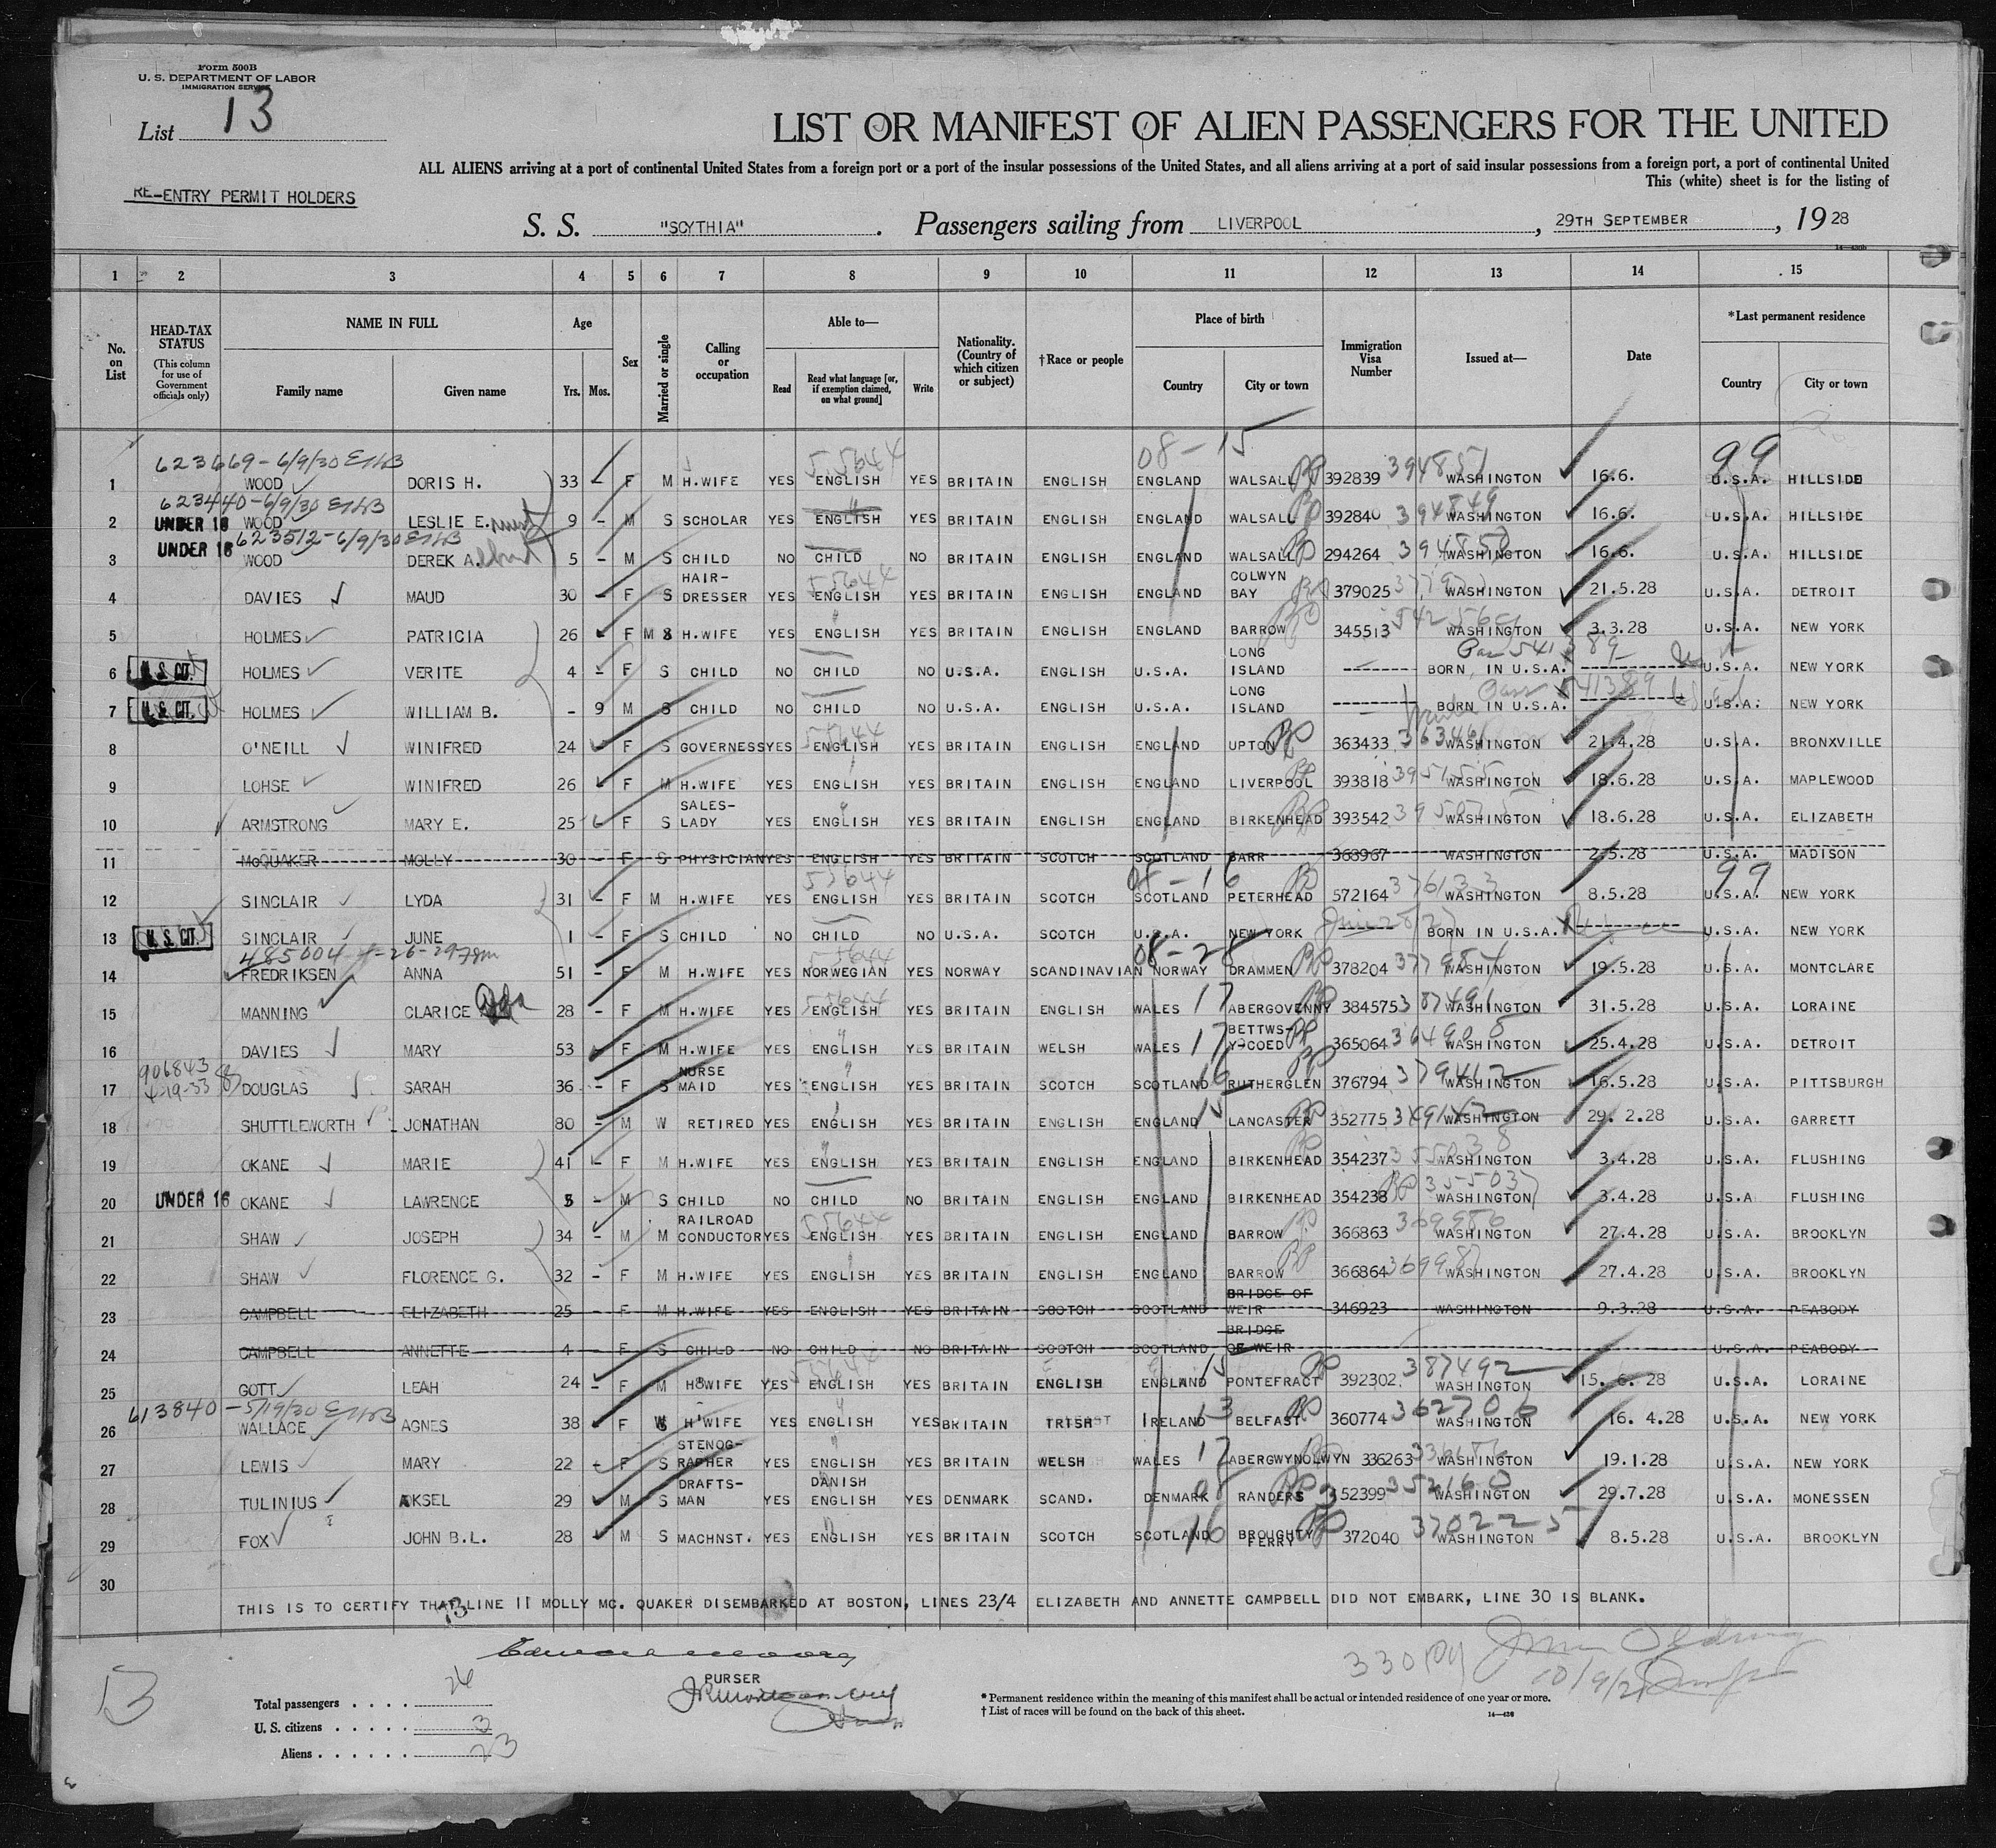 Form 500B
U. S. DEPARTMENT OF LABOR
IMMIGRATION SERVICE
List 13
LIST OR MANIFEST OF ALIEN PASSENGERS FOR THE UNITED
ALL ALIENS arriving at a port of continental United States from a foreign port or a port of the insular possessions of the United States, and all aliens arriving at a port of said insular possessions from a foreign port, a port of continental United
This (white) sheet is for the listing of
RE-ENTRY PERMIT HOLDERS
S. S. "SCYTHIA". Passengers sailing from LIVERPOOL, 29TH SEPTEMBER, 1928
14—430b
1 2 3 4 5 6 7 8 9 10 11 12 13 14 15
No. on List
HEAD-TAX STATUS (This column for use of Government officials only)
NAME IN FULL Family name Given name
Age Yrs. Mos.
Sex
Married or single
Calling or occupation
Able to— Read Read what language [or, if exemption claimed, on what ground] Write
Nationality. (Country of which citizen or subject)
†Race or people
Place of birth Country City or town
Immigration Visa Number
Issued at—
Date
*Last permanent residence Country City or town
08-15 99
623669-6/9/30 55644
1 WOOD DORIS H. 33 – F M H.WIFE YES ENGLISH YES BRITAIN ENGLISH ENGLAND WALSALL 392839 394851 WASHINGTON 16.6. U.S.A. HILLSIDE
623440-6/9/30
2 UNDER 16 WOOD LESLIE E. 9 – M S SCHOLAR YES ENGLISH YES BRITAIN ENGLISH ENGLAND WALSALL 392840 394849 WASHINGTON 16.6. U.S.A. HILLSIDE
623512-6/9/30
3 UNDER 16 WOOD DEREK A. 5 – M S CHILD NO CHILD NO BRITAIN ENGLISH ENGLAND WALSALL 294264 394850 WASHINGTON 16.6. U.S.A. HILLSIDE
4 DAVIES MAUD 30 – F S HAIR-DRESSER YES ENGLISH YES BRITAIN ENGLISH ENGLAND COLWYN BAY 379025 WASHINGTON 21.5.28 U.S.A. DETROIT
5 HOLMES PATRICIA 26 F M H.WIFE YES ENGLISH YES BRITAIN ENGLISH ENGLAND BARROW 345513 WASHINGTON 3.3.28 U.S.A. NEW YORK
6 U.S. CIT. HOLMES VERITE 4 – F S CHILD NO CHILD NO U.S.A. ENGLISH U.S.A. LONG ISLAND BORN IN U.S.A. U.S.A. NEW YORK
7 U.S. CIT. HOLMES WILLIAM B. – 9 M S CHILD NO CHILD NO U.S.A. ENGLISH U.S.A. LONG ISLAND BORN IN U.S.A. 541389 U.S.A. NEW YORK
8 O'NEILL WINIFRED 24 F S GOVERNESS YES ENGLISH YES BRITAIN ENGLISH ENGLAND UPTON 363433 WASHINGTON 21.4.28 U.S.A. BRONXVILLE
9 LOHSE WINIFRED 26 F M H.WIFE YES ENGLISH YES BRITAIN ENGLISH ENGLAND LIVERPOOL 393818 WASHINGTON 18.6.28 U.S.A. MAPLEWOOD
10 ARMSTRONG MARY E. 25 F S SALES-LADY YES ENGLISH YES BRITAIN ENGLISH ENGLAND BIRKENHEAD 393542 WASHINGTON 18.6.28 U.S.A. ELIZABETH
11 McQUAKER MOLLY 30 – F S PHYSICIAN YES ENGLISH YES BRITAIN SCOTCH SCOTLAND BARR 368967 WASHINGTON 2.5.28 U.S.A. MADISON
55644 08-16 99
12 SINCLAIR LYDA 31 – F M H.WIFE YES ENGLISH YES BRITAIN SCOTCH SCOTLAND PETERHEAD 572164 376133 WASHINGTON 8.5.28 U.S.A. NEW YORK
13 U.S. CIT. SINCLAIR JUNE 1 – F S CHILD NO CHILD NO U.S.A. SCOTCH U.S.A. NEW YORK BORN IN U.S.A. U.S.A. NEW YORK
485004 08-28
14 FREDRIKSEN ANNA 51 – F M H.WIFE YES NORWEGIAN YES NORWAY SCANDINAVIAN NORWAY DRAMMEN 378204 WASHINGTON 19.5.28 U.S.A. MONTCLARE
15 MANNING CLARICE 28 – F M H.WIFE YES ENGLISH YES BRITAIN ENGLISH WALES 17 ABERGOVENNY 384575 387491 WASHINGTON 31.5.28 U.S.A. LORAINE
16 DAVIES MARY 53 F M H.WIFE YES ENGLISH YES BRITAIN WELSH WALES 17 BETTWS-Y-COED 365064 WASHINGTON 25.4.28 U.S.A. DETROIT
906843 4-19-33
17 DOUGLAS SARAH 36 – F S NURSE MAID YES ENGLISH YES BRITAIN SCOTCH SCOTLAND 16 RUTHERGLEN 376794 379412 WASHINGTON 16.5.28 U.S.A. PITTSBURGH
18 SHUTTLEWORTH JONATHAN 80 – M W RETIRED YES ENGLISH YES BRITAIN ENGLISH ENGLAND 15 LANCASTER 352775 WASHINGTON 29. 2.28 U.S.A. GARRETT
19 OKANE MARIE 41 – F M H.WIFE YES ENGLISH YES BRITAIN ENGLISH ENGLAND BIRKENHEAD 354237 355038 WASHINGTON 3.4.28 U.S.A. FLUSHING
20 UNDER 16 OKANE LAWRENCE – M S CHILD NO CHILD NO BRITAIN ENGLISH ENGLAND BIRKENHEAD 354238 355037 WASHINGTON 3.4.28 U.S.A FLUSHING
21 SHAW JOSEPH 34 – M M RAILROAD CONDUCTOR YES ENGLISH YES BRITAIN ENGLISH ENGLAND BARROW 366863 369986 WASHINGTON 27.4.28 U.S.A. BROOKLYN
22 SHAW FLORENCE G. 32 – F M H.WIFE YES ENGLISH YES BRITAIN ENGLISH ENGLAND BARROW 366864 369987 WASHINGTON 27.4.28 U.S.A. BROOKLYN
23 CAMPBELL ELIZABETH 25 – F M H.WIFE YES ENGLISH YES BRITAIN SCOTCH SCOTLAND BRIDGE OF WEIR 346923 WASHINGTON 9.3.28 U.S.A. PEABODY
24 CAMPBELL ANNETTE 4 – F S CHILD NO CHILD NO BRITAIN SCOTCH SCOTLAND BRIDGE OF WEIR U.S.A. PEABODY
25 GOTT LEAH 24 – F M H.WIFE YES ENGLISH YES BRITAIN ENGLISH ENGLAND 15 PONTEFRACT 392302 387492 WASHINGTON 15. 6. 28 U.S.A. LORAINE
613840-5/19/30
26 WALLACE AGNES 38 F W H'WIFE YES ENGLISH YES BRITAIN IRISH IRELAND 13 BELFAST 360774 362706 WASHINGTON 16. 4.28 U.S.A. NEW YORK
27 LEWIS MARY 22 – F S STENOG-RAPHER YES ENGLISH YES BRITAIN WELSH WALES 17 ABERGWYNOLWYN 336263 WASHINGTON 19.1.28 U.S.A. NEW YORK
28 TULINIUS AKSEL 29 M S DRAFTS-MAN YES DANISH ENGLISH YES DENMARK SCAND. DENMARK 08 RANDERS 352399 352160 WASHINGTON 29.7.28 U.S.A. MONESSEN
29 FOX JOHN B.L. 28 M S MACHNST. YES ENGLISH YES BRITAIN SCOTCH SCOTLAND 16 BROUGHTY FERRY 372040 370225 WASHINGTON 8.5.28 U.S.A. BROOKLYN
30
THIS IS TO CERTIFY THAT LINE 11 MOLLY MC. QUAKER DISEMBARKED AT BOSTON, LINES 23/4 ELIZABETH AND ANNETTE CAMPBELL DID NOT EMBARK, LINE 30 IS BLANK.
PURSER
Total passengers . . . . 26
U. S. citizens . . . . . 3
Aliens . . . . . . 23
13
*Permanent residence within the meaning of this manifest shall be actual or intended residence of one year or more.
†List of races will be found on the back of this sheet.
14—430